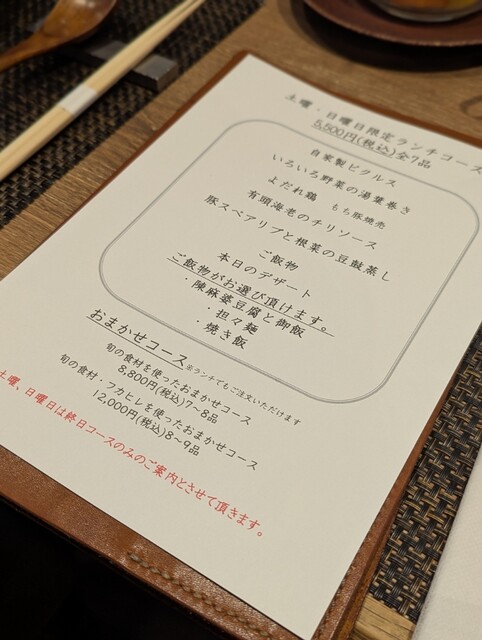 土曜・日曜日限定ランチコース
5,500円(税込)全7品
自家製ピクルス
いろいろ野菜の湯葉巻き
よだれ鶏 もち豚焼売
有頭海老のチリソース
豚スペアリブと根菜の豆鼓蒸し
ご飯物
本日のデザート
ご飯物がお選び頂けます。
・陳麻婆豆腐と御飯
・担々麺
・焼き飯
おまかせコース ※ランチでもご注文いただけます
旬の食材を使ったおまかせコース
8,800円(税込)7～8品
旬の食材・フカヒレを使ったおまかせコース
12,000円(税込)8～9品
土曜、日曜日は終日コースのみのご案内とさせて頂きます。